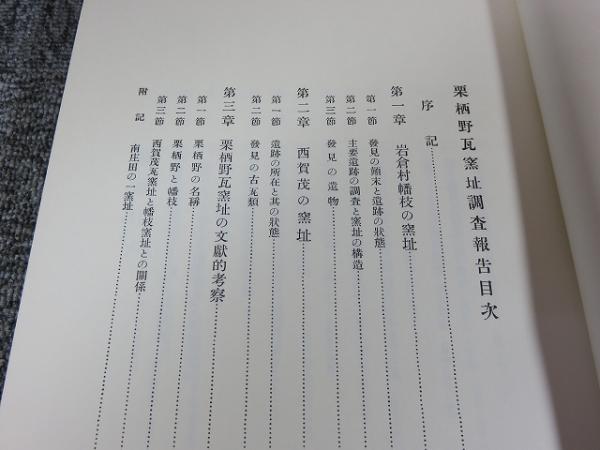 栗栖野瓦窯址調査報告目次
序記
第一章 岩倉村幡枝の窯址
第一節 發見の顚末と遺跡の狀態
第二節 主要遺跡の調査と窯址の構造
第三節 發見の遺物
第二章 西賀茂の窯址
第一節 遺跡の所在と其の狀態
第二節 發見の古瓦類
第三章 栗栖野瓦窯址の文獻的考察
第一節 栗栖野の名稱
第二節 栗栖野と幡枝
第三節 西賀茂瓦窯址と幡枝窯址との關係
附記 南庄田の一窯址